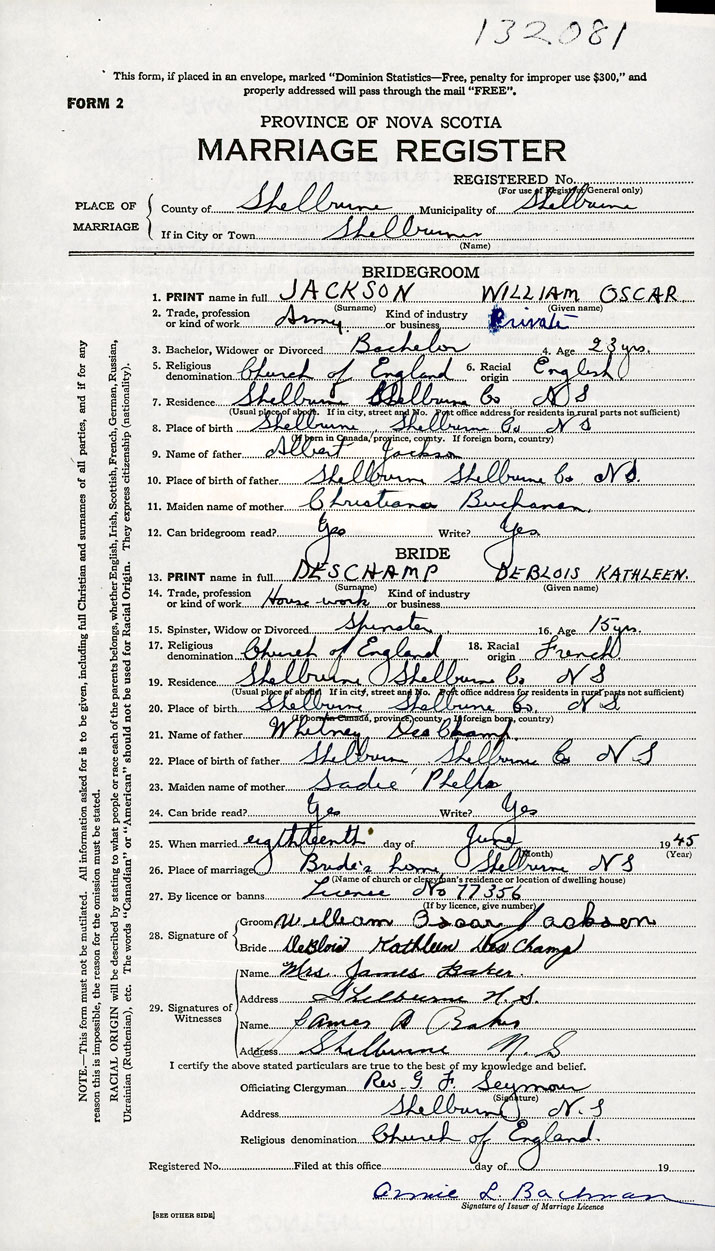 132081
This form, if placed in an envelope, marked "Dominion Statistics—Free, penalty for improper use $300," and
properly addressed will pass through the mail "FREE".
FORM 2
PROVINCE OF NOVA SCOTIA
MARRIAGE REGISTER
REGISTERED No.
(For use of Registrar General only)
PLACE OF MARRIAGE
County of Shelburne Municipality of Shelburne
If in City or Town Shelburne
(Name)
BRIDEGROOM
1. PRINT name in full JACKSON WILLIAM OSCAR
(Surname) (Given name)
2. Trade, profession or kind of work Army Kind of industry or business Private
3. Bachelor, Widower or Divorced Bachelor 4. Age 23 yrs.
5. Religious denomination Church of England 6. Racial origin English
7. Residence Shelburne Shelburne Co N S
(Usual place of abode. If in city, street and No. Post office address for residents in rural parts not sufficient)
8. Place of birth Shelburne Shelburne Co. N S
(If born in Canada, province, county. If foreign born, country)
9. Name of father Albert Jackson
10. Place of birth of father Shelburne Shelburne Co N.S.
11. Maiden name of mother Christiana Buchanan
12. Can bridegroom read? Yes Write? Yes
BRIDE
13. PRINT name in full DESCHAMP DEBLOIS KATHLEEN.
(Surname) (Given name)
14. Trade, profession or kind of work House work Kind of industry or business
15. Spinster, Widow or Divorced Spinster 16. Age 15 yrs.
17. Religious denomination Church of England 18. Racial origin French
19. Residence Shelburne Shelburne Co N S
(Usual place of abode. If in city, street and No. Post office address for residents in rural parts not sufficient)
20. Place of birth Shelburne Shelburne Co. N. S
(If born in Canada, province, county. If foreign born, country)
21. Name of father Whitney DesChamp
22. Place of birth of father Shelburne Shelburne Co N S
23. Maiden name of mother Sadie Phelps
24. Can bride read? Yes Write? Yes
25. When married eighteenth day of June 1945
(Month) (Year)
26. Place of marriage Bride's home, Shelburne N S
(Name of church or clergyman's residence or location of dwelling house)
27. By licence or banns Licence No 77356
(If by licence, give number)
28. Signature of
Groom William Oscar Jackson
Bride DeBlois Kathleen DesChamp
29. Signatures of Witnesses
Name Mrs James Baker.
Address Shelburne N.S.
Name James A Baker
Address Shelburne N. S
I certify the above stated particulars are true to the best of my knowledge and belief.
Officiating Clergyman Rev. G F. Seymour
(Signature)
Address Shelburne N. S
Religious denomination Church of England.
Registered No. Filed at this office day of 19
Annie L. Bachman
Signature of Issuer of Marriage Licence
[SEE OTHER SIDE]
NOTE.—This form must not be mutilated. All information asked for is to be given, including full Christian and surnames of all parties, and if for any
reason this is impossible, the reason for the omission must be stated.
RACIAL ORIGIN will be described by stating to what people or race each of the parents belongs, whether English, Irish, Scottish, French, German, Russian,
Ukrainian (Ruthenian), etc. The words "Canadian" or "American" should not be used for Racial Origin. They express citizenship (nationality).